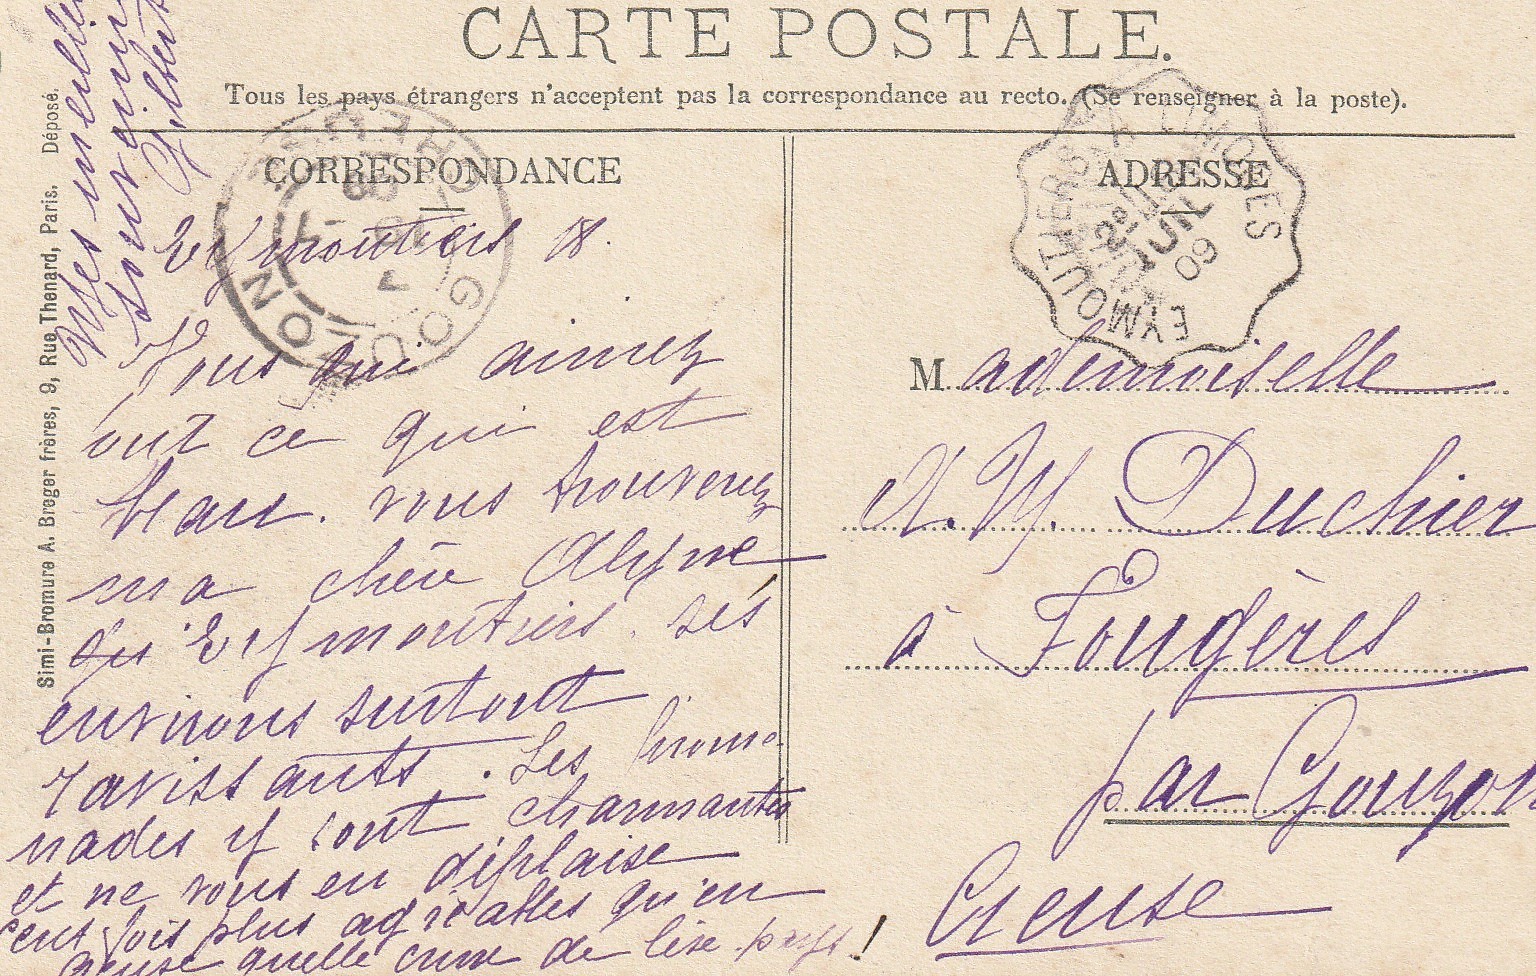 CARTE POSTALE.
Tous les pays étrangers n'acceptent pas la correspondance au recto. (Se renseigner à la poste).
CORRESPONDANCE
Eymoutiers 18.
Vous qui aimez
tout ce qui est
beau. vous trouverez
ma chère Alyne
qu'Eymoutiers. ses
environs surtout
ravissants. Les prome-
nades y sont charmantes
et ne vous en déplaise
cent fois plus agréables qu'en
Creuse quelle cure de pays!
Mes meilleurs
souvenirs
Gilbert
ADRESSE
Mademoiselle
A. M. Duchier
à Fougères
par Gouzon
Creuse
GOUZON
CREUSE
EYMOUTIERS A LIMOGES
JUIN
09
Simi-Bromure A. Breger frères, 9, Rue Thenard, Paris. Déposé.